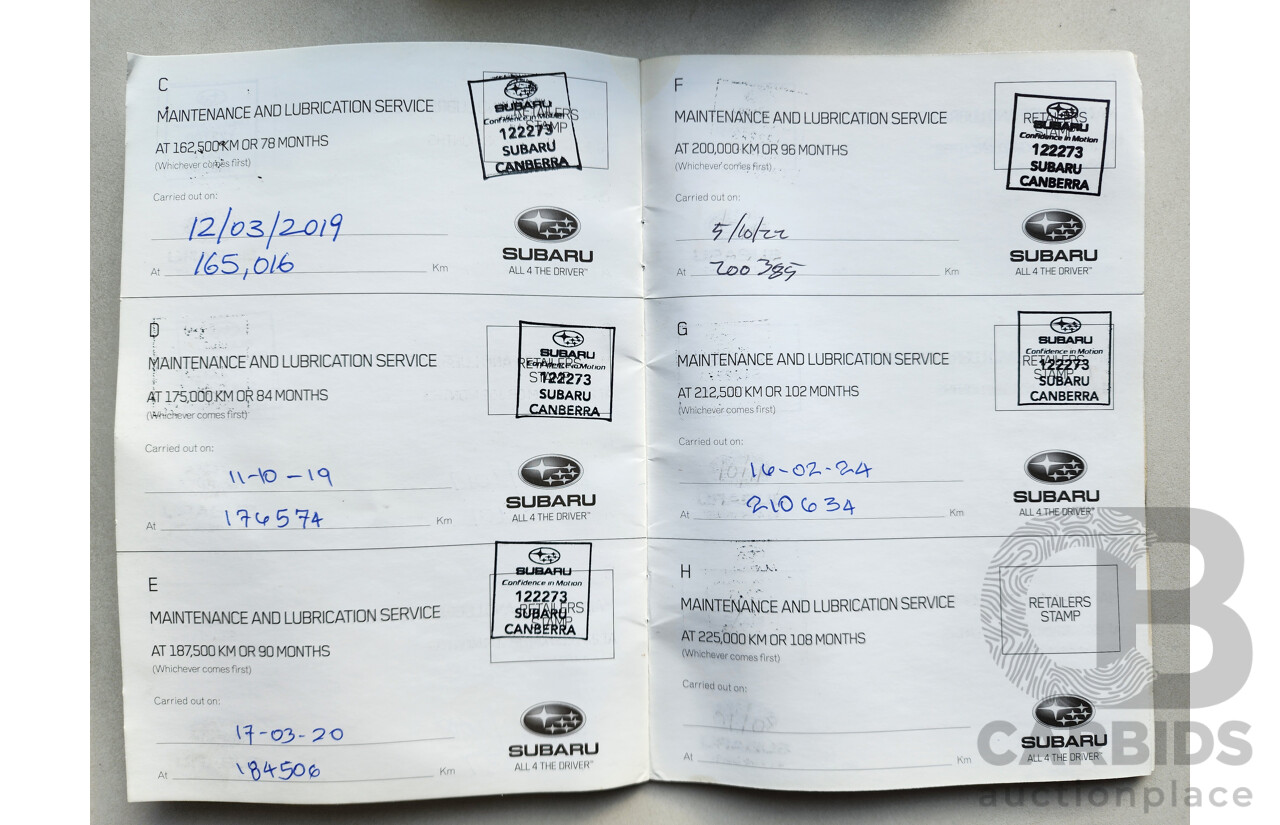 C
MAINTENANCE AND LUBRICATION SERVICE
AT 162,500 KM OR 78 MONTHS
(Whichever comes first)
RETAILERS
STAMP
SUBARU
Confidence in Motion
122273
SUBARU
CANBERRA
Carried out on:
12/03/2019
At 165,016 Km
SUBARU
ALL 4 THE DRIVER™
D
MAINTENANCE AND LUBRICATION SERVICE
AT 175,000 KM OR 84 MONTHS
(Whichever comes first)
RETAILERS
STAMP
SUBARU
Confidence in Motion
122273
SUBARU
CANBERRA
Carried out on:
11-10-19
At 176574 Km
SUBARU
ALL 4 THE DRIVER™
E
MAINTENANCE AND LUBRICATION SERVICE
AT 187,500 KM OR 90 MONTHS
(Whichever comes first)
RETAILERS
STAMP
SUBARU
Confidence in Motion
122273
SUBARU
CANBERRA
Carried out on:
17-03-20
At 184506 Km
SUBARU
ALL 4 THE DRIVER™
F
MAINTENANCE AND LUBRICATION SERVICE
AT 200,000 KM OR 96 MONTHS
(Whichever comes first)
RETAILERS
STAMP
SUBARU
Confidence in Motion
122273
SUBARU
CANBERRA
Carried out on:
5/10/22
At 200385 Km
SUBARU
ALL 4 THE DRIVER™
G
MAINTENANCE AND LUBRICATION SERVICE
AT 212,500 KM OR 102 MONTHS
(Whichever comes first)
RETAILERS
STAMP
SUBARU
Confidence in Motion
122273
SUBARU
CANBERRA
Carried out on:
16-02-24
At 210634 Km
SUBARU
ALL 4 THE DRIVER™
H
MAINTENANCE AND LUBRICATION SERVICE
AT 225,000 KM OR 108 MONTHS
(Whichever comes first)
RETAILERS
STAMP
Carried out on:
At Km
SUBARU
ALL 4 THE DRIVER™
CB
CARBIDS
auctionplace